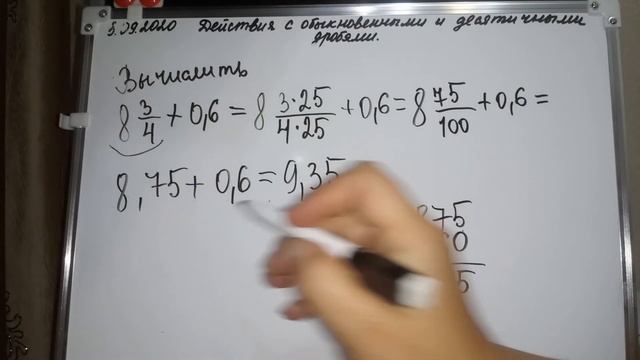 5.09.2020 Действия с обыкновенными и десятичными
дробями.
Вычислить
8 3/4 + 0,6 = 8 3·25/4·25 + 0,6 = 8 75/100 + 0,6 =
8,75 + 0,6 = 9,35
875
0
5